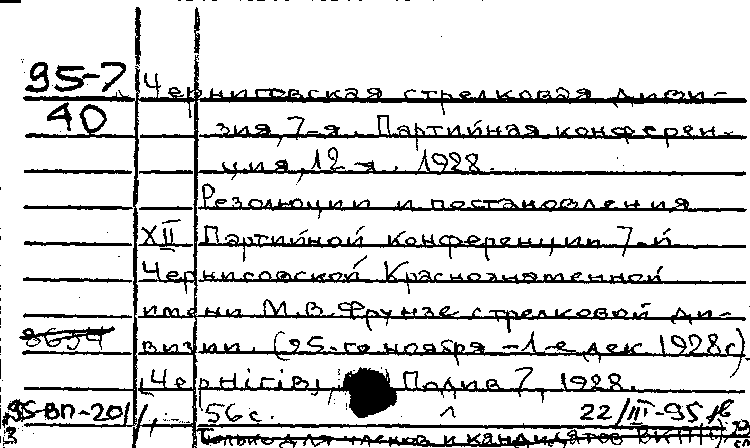 95-7 Черниговская стрелковая диви-
40
зия, 7-я. Партийная конферен-
ция, 12-я. 1928.
Резолюции и постановления
XII Партийной конференции 7-й
Черниговской Краснознаменной
имени М.В. Фрунзе стрелковой ди-
8654 визии. (25-го ноября -1-е дек 1928г)
[Чернігів], Подив 7, 1928.
35-ВП-201 56 с. 22/III-95
Только для членов и кандидатов ВКП(б)